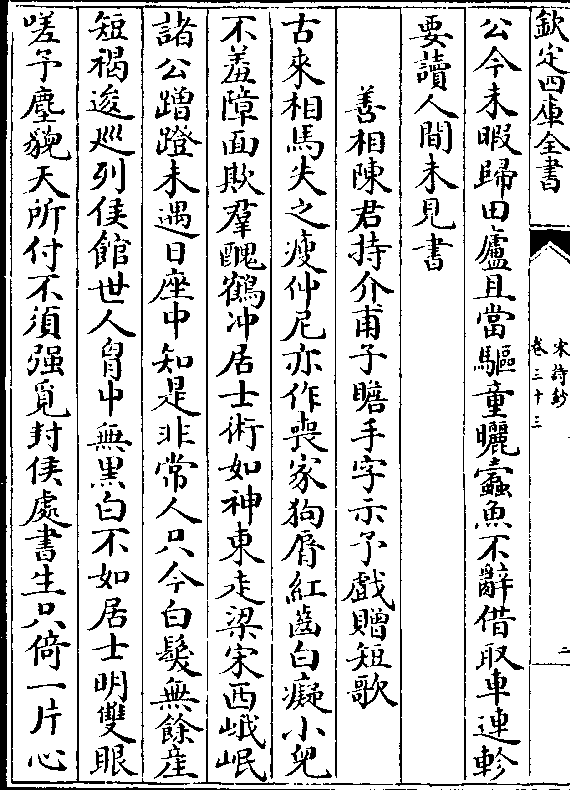 欽定四庫全書
宋詩鈔
卷三十三
二
公今未暇歸田廬且當驅童曬蠹魚不辭借取車連軫
要讀人間未見書
善相陳君持介甫子瞻手字示予戲贈短歌
古來相馬失之瘦仲尼亦作喪家狗脣紅齒白癡小兒
不羞障面欺羣醜鶴冲居士術如神東走梁宋西峨岷
諸公蹭蹬未遇日座中知是非常人只今白髮無餘産
短褐逡巡列侯館世人胷中無黒白不如居士明雙眼
嗟予塵貌天所付不須强覓封侯處書生只倚一片心